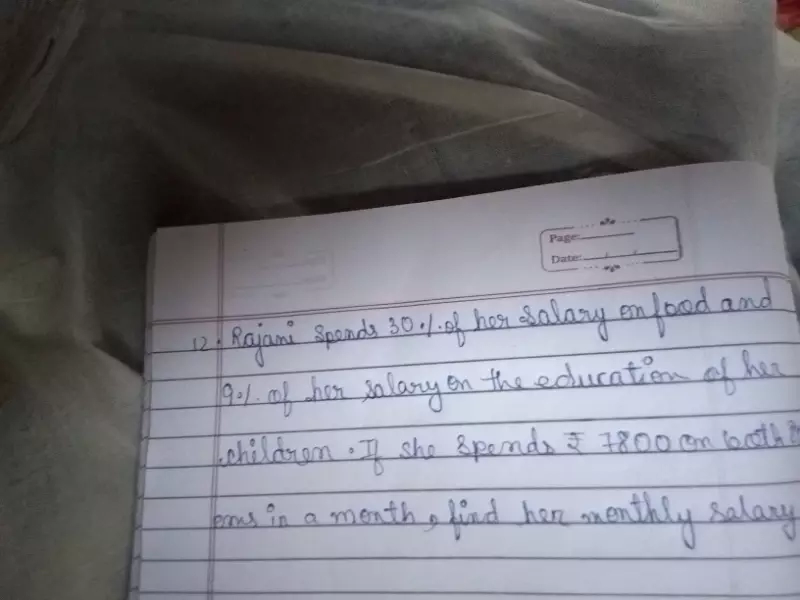 Page:
Date:
12. Rajani spends 30% of her salary on food and
9% of her salary on the education of her
children. If she spends ₹ 7800 on both
ems in a month, find her monthly salary